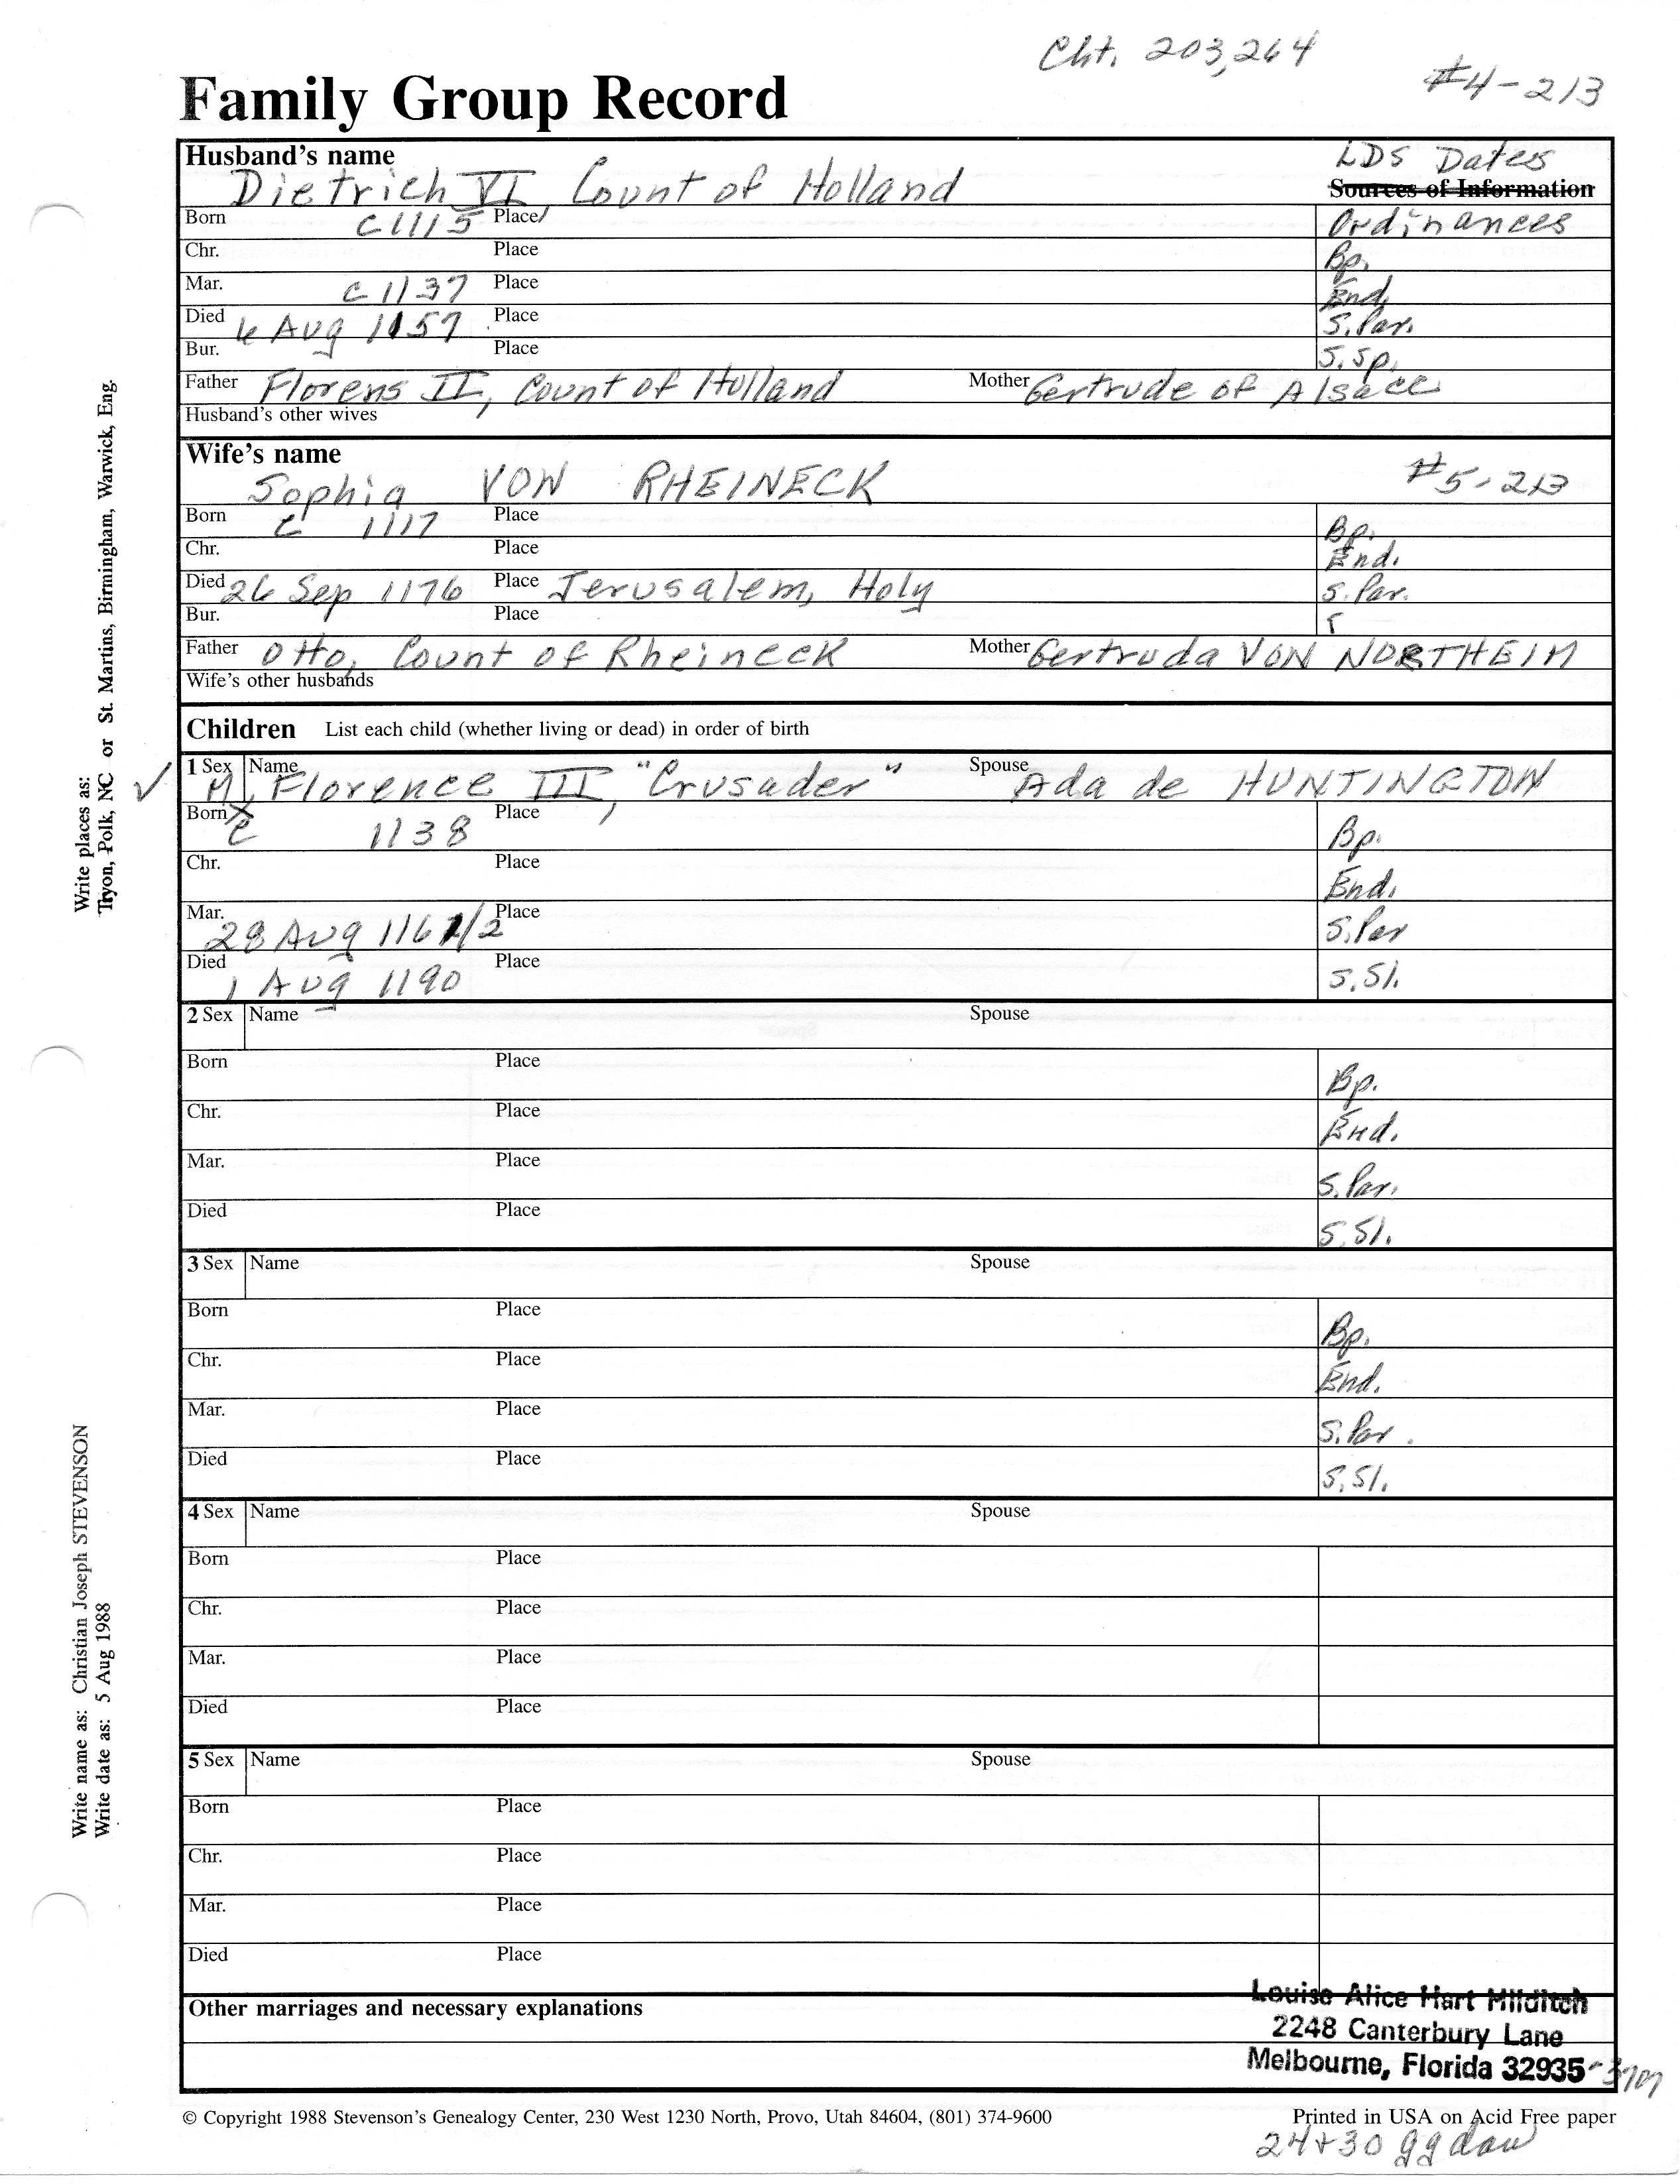 Cht. 203,264
#4-213
Family Group Record
Husband's name
LDS Dates
Dietrich VI, Count of Holland
Sources of Information
Born c 1115 Place
Ordinances
Chr. Place
Bp.
Mar. c 1137 Place
End.
Died 6 Aug 1157 Place
S. Par.
Bur. Place
S. Sp.
Father Florens II, Count of Holland Mother Gertrude of Alsace
Husband's other wives
Wife's name
Sophia VON RHEINECK #5-213
Born c 1117 Place
Bp.
Chr. Place
End.
Died 26 Sep 1176 Place Jerusalem, Holy
S. Par.
Bur. Place
Father Otto, Count of Rheineck Mother Gertruda VON NORTHEIM
Wife's other husbands
Children List each child (whether living or dead) in order of birth
1 Sex Name Spouse
✓ M Florence III, "Crusader" Ada de HUNTINGTON
Born Place
c 1138 Bp.
Chr. Place
End.
Mar. Place
28 Aug 1161/2 S. Par
Died Place
1 Aug 1190 S. Sl.
2 Sex Name Spouse
Born Place
Bp.
Chr. Place
End.
Mar. Place
S. Par.
Died Place
S. Sl.
3 Sex Name Spouse
Born Place
Bp.
Chr. Place
End.
Mar. Place
S. Par.
Died Place
S. Sl.
4 Sex Name Spouse
Born Place
Chr. Place
Mar. Place
Died Place
5 Sex Name Spouse
Born Place
Chr. Place
Mar. Place
Died Place
Other marriages and necessary explanations
Louise Alice Hart Milditch
2248 Canterbury Lane
Melbourne, Florida 32935-3707
© Copyright 1988 Stevenson's Genealogy Center, 230 West 1230 North, Provo, Utah 84604, (801) 374-9600
Printed in USA on Acid Free paper
24+30 gg dau
Write places as:
Tryon, Polk, NC or St. Martins, Birmingham, Warwick, Eng.
Write name as: Christian Joseph STEVENSON
Write date as: 5 Aug 1988